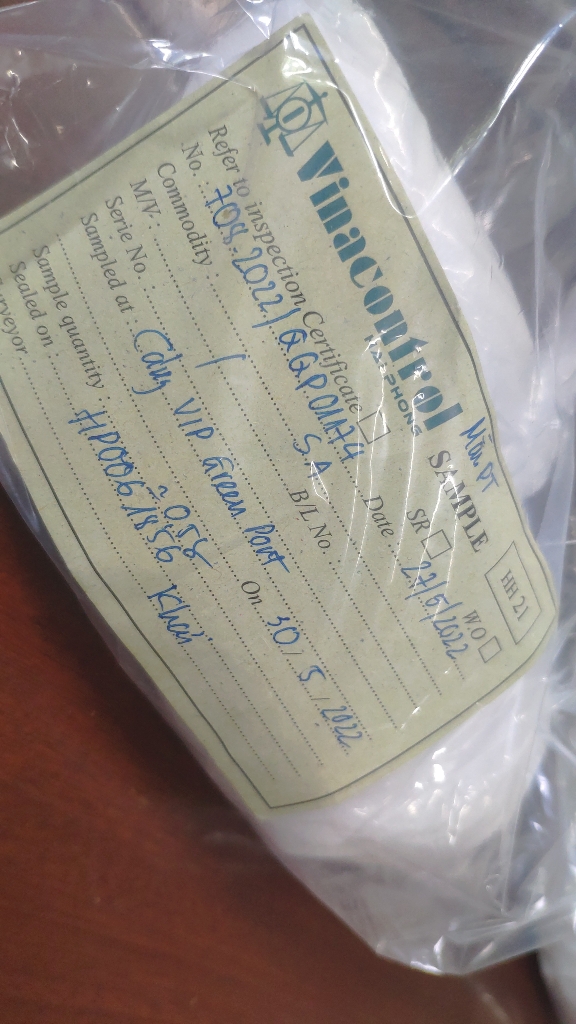 Vinacontrol
HAIPHONG
SAMPLE
HH 21
Refer to inspection Certificate SR W.O
No. 708.2022/ Date 27/5/2022
Commodity S.A
M/V. / B/L No
Serie No.
Sampled at Cảng VIP Green Port On 30/5/2022
Sample quantity
Sealed on HP006 1856
urveyor Khải